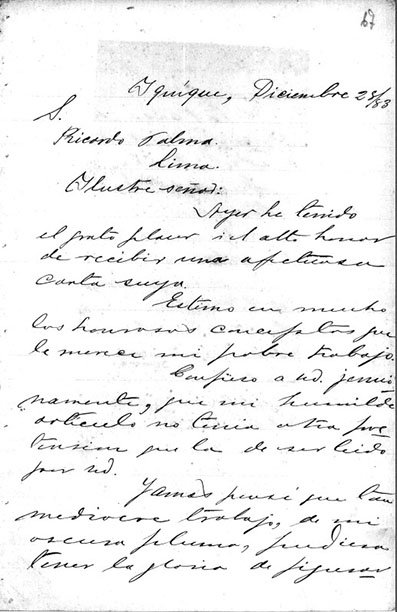 67
Iquique, Diciembre 28/88
S.
Ricardo Palma.
Lima.
Ilustre señor:
Ayer he tenido
el grato placer i el alto honor
de recibir una afectuosa
carta suya.
Estimo en mucho
los honrosos conceptos que
le merece mi pobre trabajo.
Confieso a ud. jenui
namente, que mi humilde
artículo no tenia otra pre
tension que la de ser leido
por ud.
Yamás pensé que tan
mediocre trabajo, de mi
oscura pluma, pudiera
tener la gloria de figurar